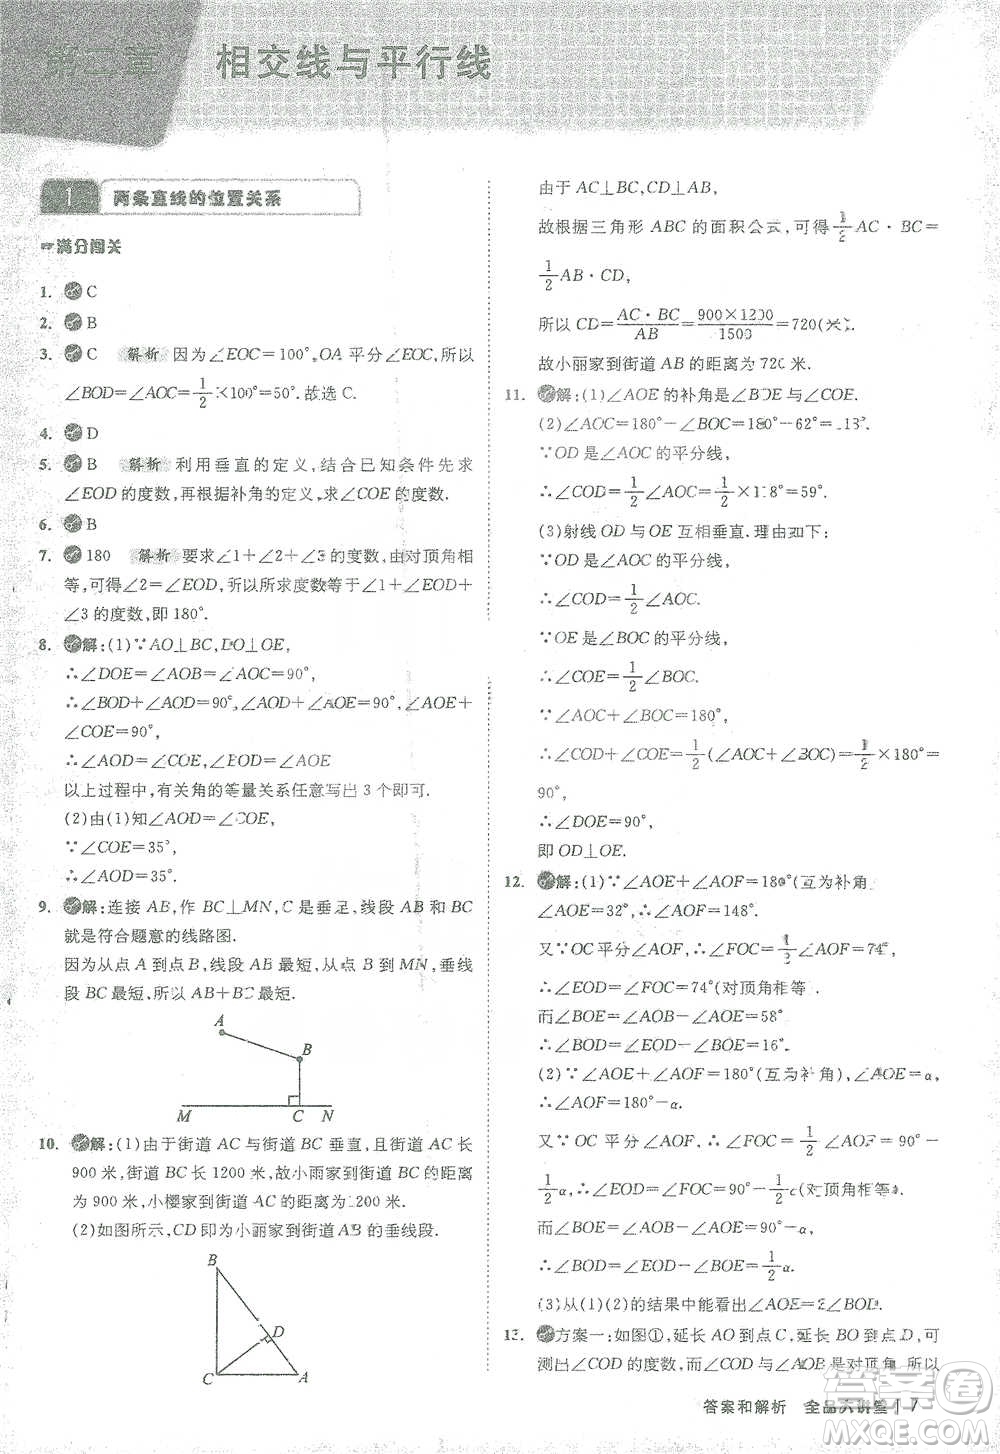 第二章 相交线与平行线
1 两条直线的位置关系
满分闯关
1. C
2. B
3. C 解析 因为∠EOC=100°,OA平分∠EOC,所以
∠BOD=∠AOC=1/2×100°=50°.故选C.
4. D
5. B 解析 利用垂直的定义,结合已知条件先求
∠EOD的度数,再根据补角的定义,求∠COE的度数.
6. B
7. 180 解析 要求∠1+∠2+∠3的度数,由对顶角相
等,可得∠2=∠EOD,所以所求度数等于∠1+∠EOD+
∠3的度数,即180°.
8. 解:(1)∵AO⊥BC,DO⊥OE,
∴∠DOE=∠AOB=∠AOC=90°,
∴∠BOD+∠AOD=90°,∠AOD+∠AOE=∠AOE+
∠COE=90°,
∴∠AOD=∠COE,∠BOD=∠AOE
以上过程中,有关角的等量关系任意写出3个即可.
(2)由(1)知∠AOD=∠COE,
∵∠COE=35°,
∴∠AOD=35°.
9. 解:连接AB,作BC⊥MN,C是垂足,线段AB和BC
就是符合题意的线路图.
因为从点A到点B,线段AB最短,从点B到MN,垂线
段BC最短,所以AB+BC最短.
A
B
M C N
10. 解:(1)由于街道AC与街道BC垂直,且街道AC长
900米,街道BC长1200米,故小雨家到街道BC的距离
为900米,小樱家到街道AC的距离为1200米.
(2)如图所示,CD即为小丽家到街道AB的垂线段.
B
D
C A
由于AC⊥BC,CD⊥AB,
故根据三角形ABC的面积公式,可得1/2AC·BC=
1/2AB·CD,
所以CD=AC·BC/AB=900×1200/1500=720(米).
故小丽家到街道AB的距离为720米.
11. 解:(1)∠AOE的补角是∠BOE与∠COE.
(2)∠AOC=180°-∠BOC=180°-62°=118°.
∵OD是∠AOC的平分线,
∴∠COD=1/2∠AOC=1/2×118°=59°.
(3)射线OD与OE互相垂直.理由如下:
∵OD是∠AOC的平分线,
∴∠COD=1/2∠AOC.
∵OE是∠BOC的平分线,
∴∠COE=1/2∠BOC.
∵∠AOC+∠BOC=180°,
∴∠COD+∠COE=1/2(∠AOC+∠BOC)=1/2×180°=
90°,
∴∠DOE=90°,
即OD⊥OE.
12. 解:(1)∵∠AOE+∠AOF=180°(互为补角
∠AOE=32°,∴∠AOF=148°.
又∵OC平分∠AOF,∴∠FOC=1/2∠AOF=74°,
∴∠EOD=∠FOC=74°(对顶角相等.
而∠BOE=∠AOB-∠AOE=58°
∴∠BOD=∠EOD-∠BOE=16°.
(2)∵∠AOE+∠AOF=180°(互为补角),∠AOE=α,
∴∠AOF=180°-α.
又∵OC平分∠AOF,∴∠FOC=1/2∠AOF=90°-
1/2α,∴∠EOD=∠FOC=90°-1/2α(对顶角相等).
而∠BOE=∠AOB-∠AOE=90°-α,
∴∠BOD=∠EOD-∠BOE=1/2α.
(3)从(1)(2)的结果中能看出∠AOE=2∠BOD.
13. 方案一:如图①,延长AO到点C,延长BO到点D,可
测出∠COD的度数,∠COD与∠AOB是对顶角,所以
答案和解析 全品大讲堂 | 7
答案圈
MXQE.COM